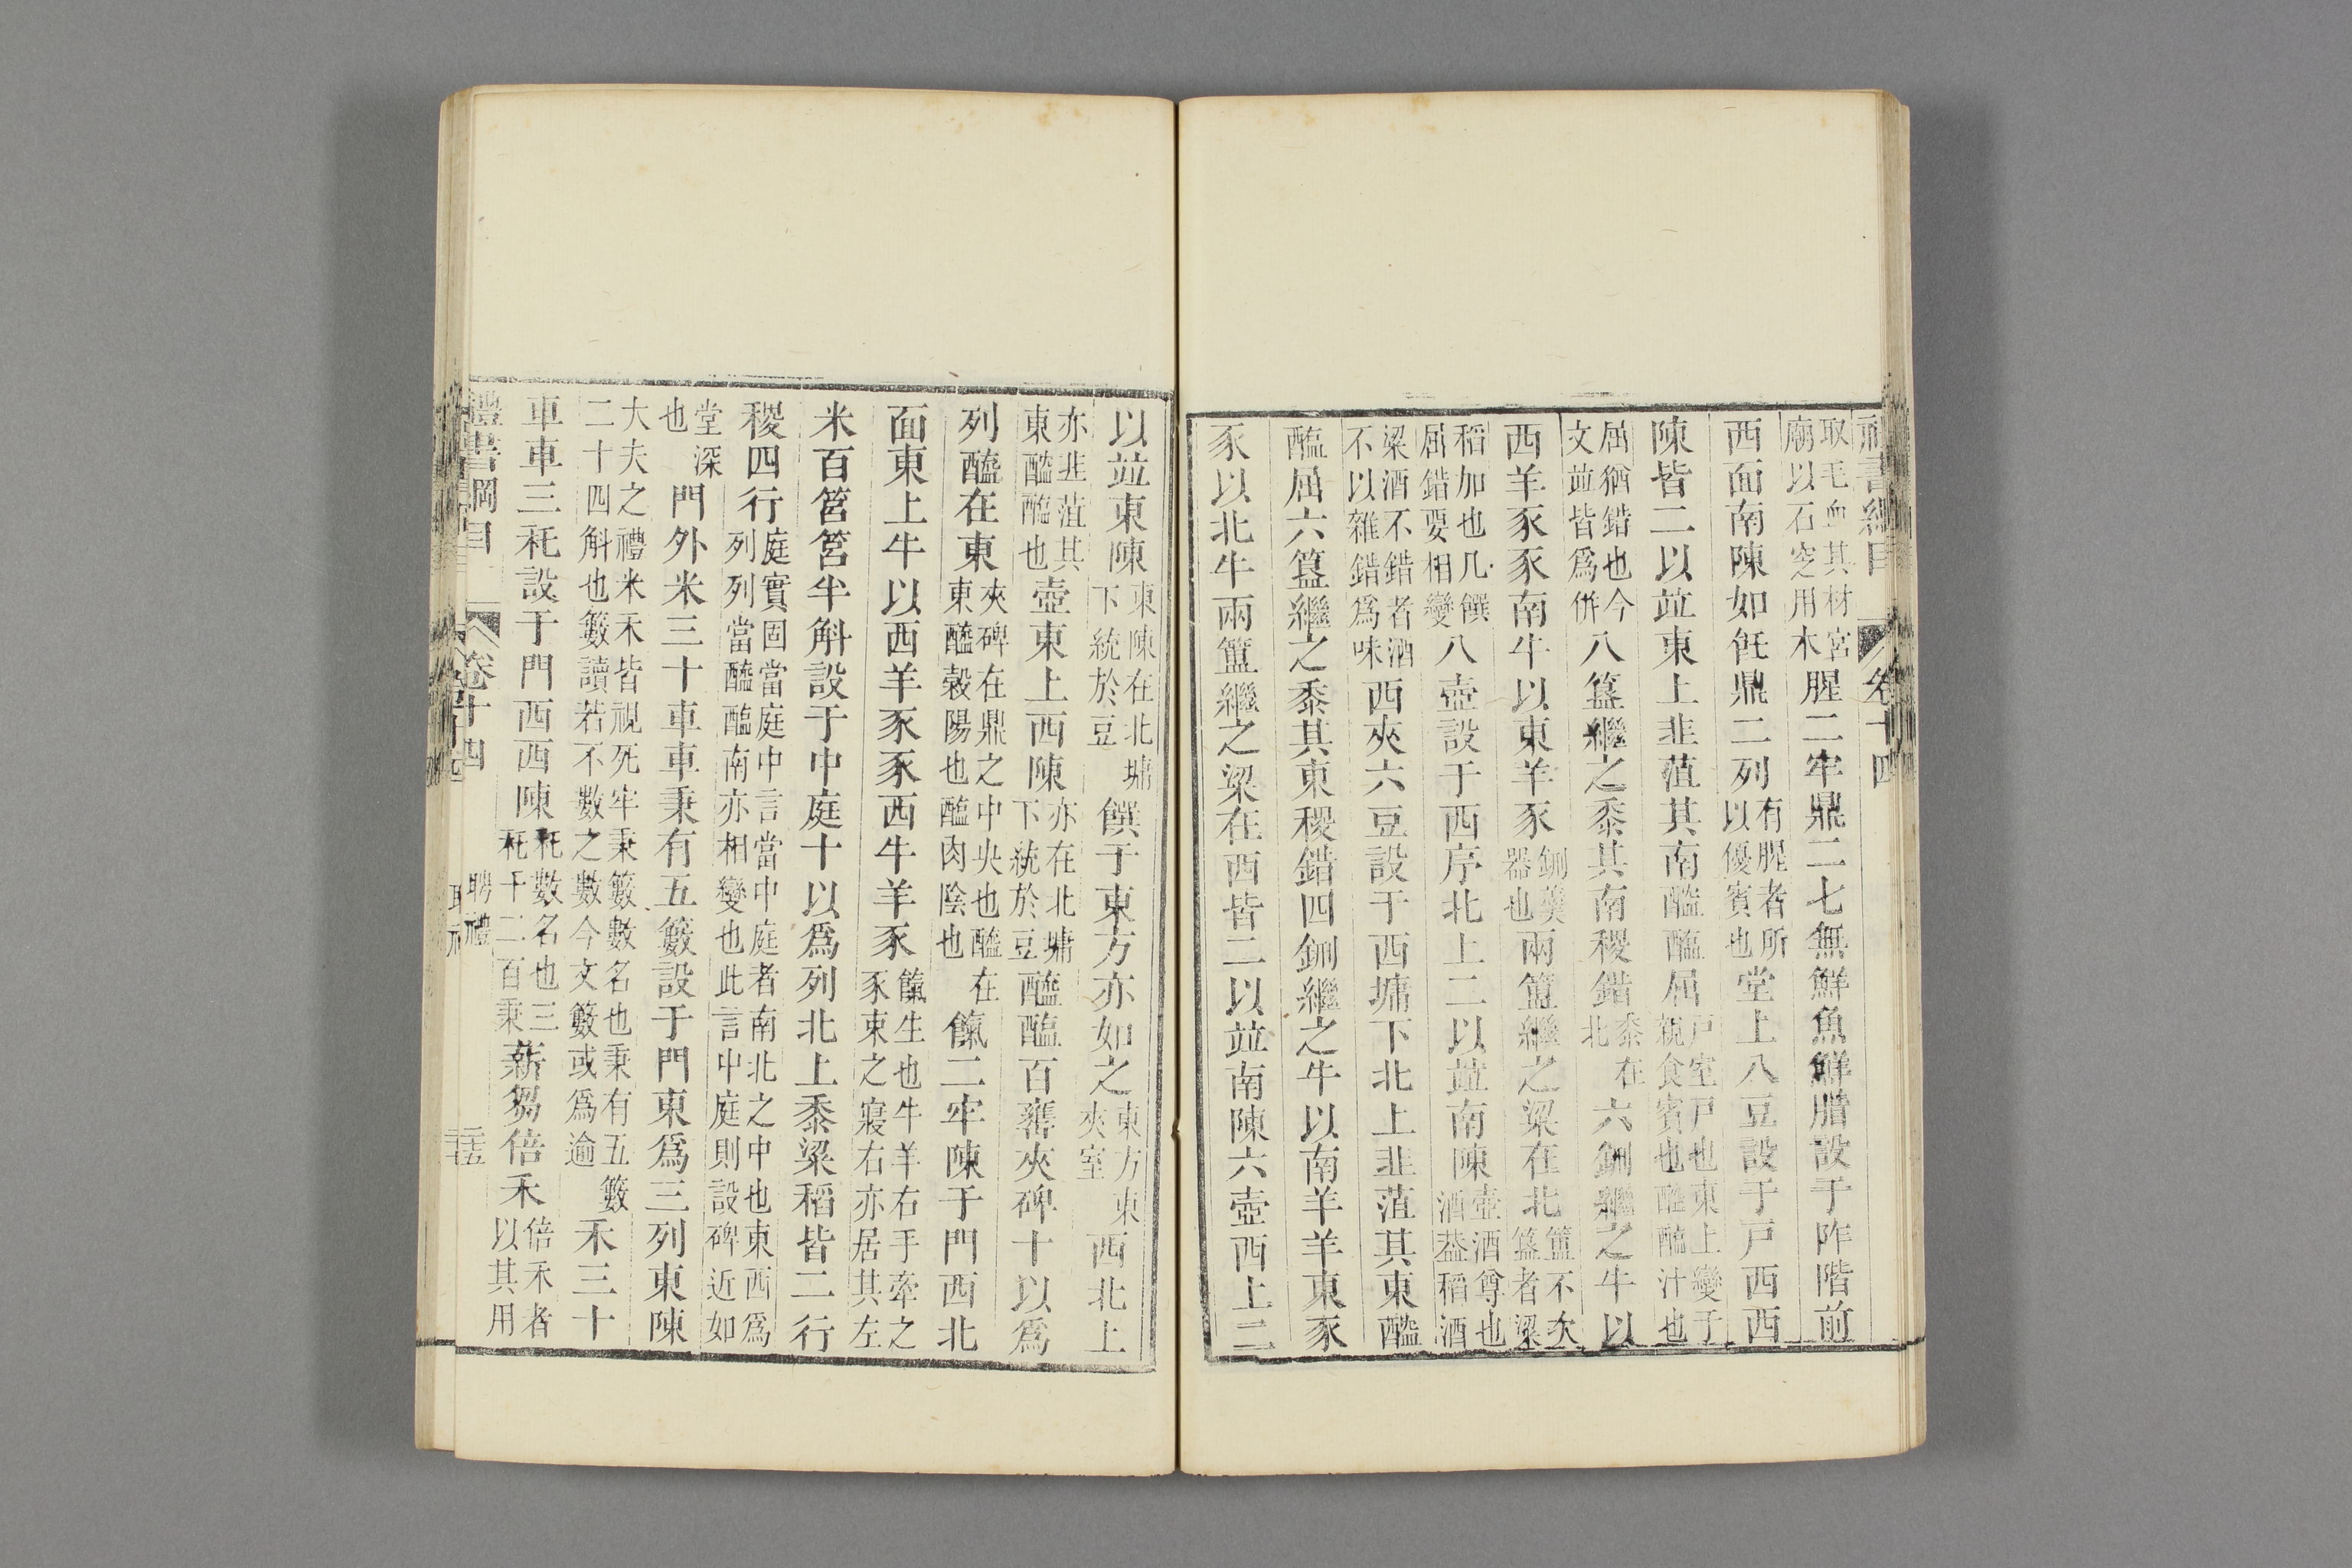 書綱目 卷十四
取毛血其材宮
廟以石窆用木
腥二牢鼎二七無鮮魚鮮腊設于阼階前
西面南陳如飪鼎二列
有腥者所
以優賓也
堂上八豆設于戶西西
陳皆二以竝東上韭菹其南醓醢屈
戶室戶也東上變于
親食賓也醓醢汁也
屈猶錯也今
文竝皆爲併
八簋繼之黍其南稷錯
黍在
北
六鉶繼之牛以
西羊豕豕南牛以東羊豕
鉶羹
器也
兩簠繼之粱在北
簠不次
簋者粱
稻加也凡饌
屈錯要相變
八壺設于西序北上二以竝南陳
壺酒尊也
酒葢稻酒
粱酒不錯者酒
不以雜錯爲味
西夾六豆設于西墉下北上韭菹其東醓
醢屈六簋繼之黍其東稷錯四鉶繼之牛以南羊羊東豕
豕以北牛兩簠繼之粱在西皆二以竝南陳六壺西上二
以竝東陳
東陳在北墉
下統於豆
饌于東方亦如之
東方東
夾室
西北上
亦韭菹其
東醓醢也
壺東上西陳
亦在北墉
下統於豆
醯醢百罋夾碑十以爲
列醯在東
夾碑在鼎之中央也醯在
東醯穀陽也醢肉陰也
餼二牢陳于門西北
面東上牛以西羊豕豕西牛羊豕
餼生也牛羊右手牽之
豕束之寢右亦居其左
米百筥筥半斛設于中庭十以爲列北上黍粱稻皆二行
稷四行
庭實固當庭中言當中庭者南北之中也東西爲
列列當醯醢南亦相變也此言中庭則設碑近如
堂深
也
門外米三十車車秉有五籔設于門東爲三列東陳
大夫之禮米禾皆視死牢秉籔數名也秉有五籔
二十四斛也籔讀若不數之數今文籔或爲逾
禾三十
車車三秅設于門西西陳
秅數名也三
秅千二百秉
薪芻倍禾
倍禾者
以其用
禮書綱目 卷十四 聘禮